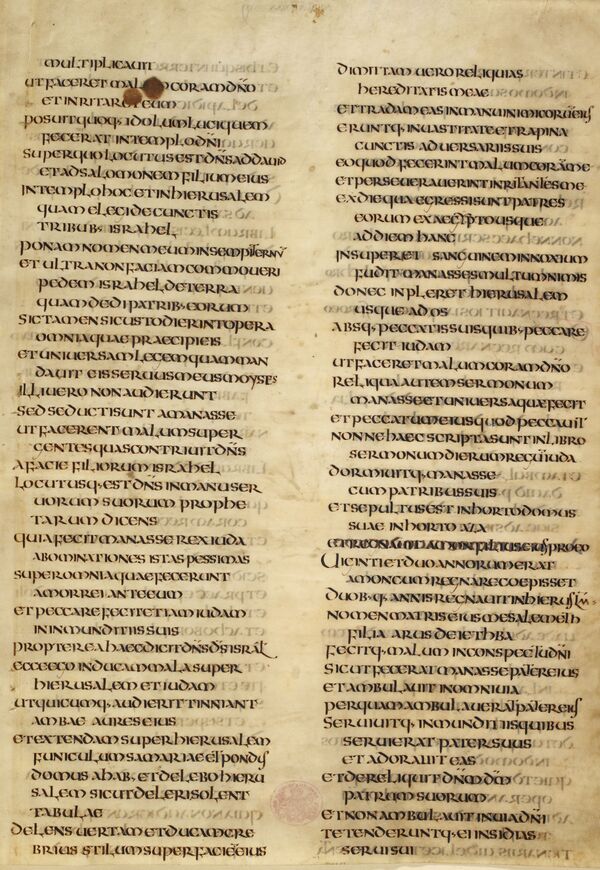 MULTIPLICAUIT
UT FACERET MALUM CORAM DÑO
ET INRITARET EUM
POSUITQUOQ· IDOLUM LUCI QUEM
FECERAT IN TEMPLO DÑI
SUPER QUO LOCUTUS EST DÑS AD DAUID
ET AD SALOMONEM FILIUM EIUS
IN TEMPLO HOC ET IN HIERUSALEM
QUAM ELEGI DE CUNCTIS
TRIBUB· ISRAHEL
PONAM NOMEN MEUM IN SEMPITERNŪ
ET ULTRA NON FACIAM COMMOUERI
PEDEM ISRAHEL DE TERRA
QUAM DEDI PATRIB· EORUM
SIC TAMEN SI CUSTODIERINT OPERA
OMNIA QUAE PRAECIPI EIS
ET UNIUERSAM LEGEM QUAM MAN
DAUIT EIS SERUUS MEUS MOYSES
ILLI UERO NON AUDIERUNT
SED SEDUCTI SUNT A MANASSE
UT FACERENT MALUM SUPER
GENTES QUAS CONTRIUIT DÑS
A FACIE FILIORUM ISRAHEL
LOCUTUSQ· EST DÑS IN MANU SER
UORUM SUORUM PROPHE
TARUM DICENS
QUIA FECIT MANASSE REX IUDA
ABOMINATIONES ISTAS PESSIMAS
SUPER OMNIA QUAE FECERUNT
AMORREI ANTE EUM
ET PECCARE FECIT ETIAM IUDAM
IN INMUNDITIIS SUIS
PROPTEREA HAEC DICIT DÑS DS̄ ISRAL
ECCE EGO INDUCAM MALA SUPER
HIERUSALEM ET IUDAM
UT QUICUMQ· AUDIERIT TINNIANT
AMBAE AURES EIUS
ET EXTENDAM SUPER HIERUSALEM
FUNICULUM SAMARIAE ET PONDUS
DOMUS AHAB· ET DELEBO HIERU
SALEM SICUT DELERI SOLENT
TABULAE
DELENS UERTAM ET DUCAM CRE
BRIUS STILUM SUPER FACIĒ EIUS
DIMITTAM UERO RELIQUIAS
HEREDITATIS MEAE
ET TRADAM EAS IN MANU INIMICORŪ EIUS
ERUNTQ· IN UASTITATE ET RAPINA
CUNCTIS ADUERSARIIS SUIS
EO QUOD FECERINT MALUM CORĀ ME
ET PERSEUERAUERINT INRITANTES ME
EX DIE QUA EGRESSI SUNT PATRES
EORUM EX AEGYPTO USQUE
AD DIEM HANC
INSUPER ET SANGUINEM INNOXIUM
FUDIT MANASSES MULTUM NIMIS
DONEC INPLERET HIERUSALEM
USQUE AD OS
ABSQ· PECCATIS SUIS QUIB· PECCARE
FECIT IUDAM
UT FACERET MALUM CORAM DÑO
RELIQUA AUTEM SERMONUM
MANASSE ET UNIUERSA QUAE FECIT
ET PECCATUM EIUS QUOD PECCAUIT
NONNE HAEC SCRIPTA SUNT IN LIBRO
SERMONUM DIERUM REGŪ IUDA
DORMIUITQ· MANASSE
CUM PATRIBUS SUIS
ET SEPULTUS EST IN HORTO DOMUS
SUAE IN HORTO AZA
ET REGNAUIT AMON FILIUS EIUS PRO EO
UIGINTI ET DUO ANNORUM ERAT
AMON CUM REGNARE COEPISSET
DUOB·Q· ANNIS REGNAUIT IN HIERUSLM̄
NOMEN MATRIS EIUS MESALEMETH
FILIA ARUS DE IETHBA
FECITQ· MALUM IN CONSPECTU DÑI
SICUT FECERAT MANASSE PATER EIUS
ET AMBULAUIT IN OMNI UIA
PER QUAM AMBULAUERAT PATER EIUS
SERUIUITQ· INMUNDITIIS QUIBUS
SERUIERAT PATER SUUS
ET ADORAUIT EAS
ET DERELIQUIT DÑM DM̄
PATRUM SUORUM
ET NON AMBULAUIT IN UIA DÑI
TETENDERUNTQ· EI INSIDIAS
SERUI SUI